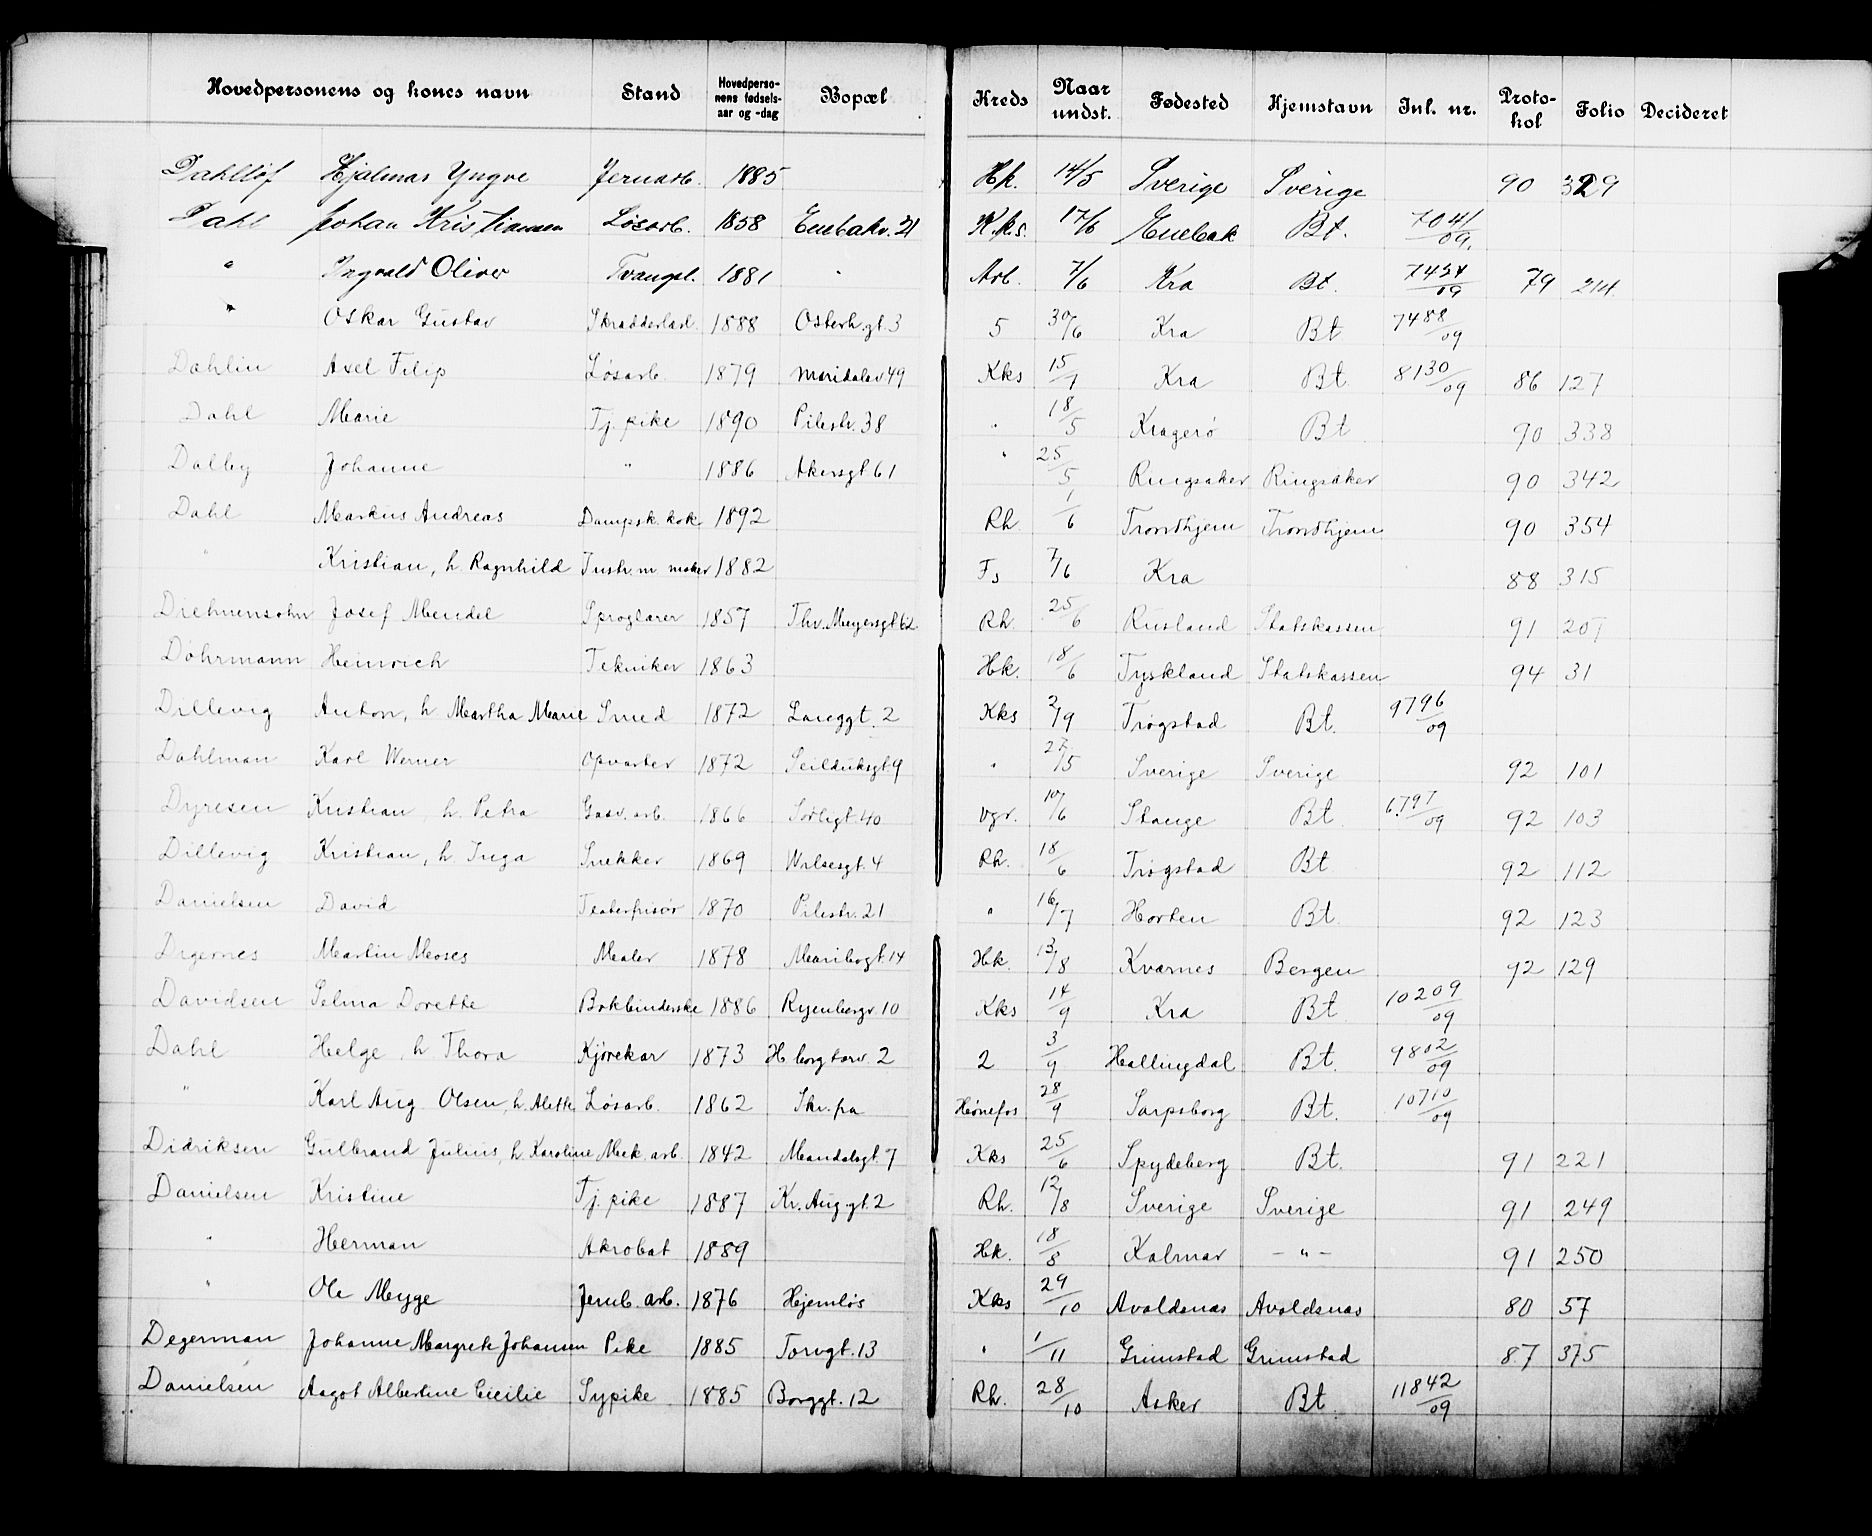 Hovedpersonens og kones navn Stand Hovedpersonens fødselsaar og -dag Bopæl Kreds Naar undst. Fødested Hjemstavn Inl. nr. Protokol Folio Decideret
Dahllöf Hjalmar Yngve Jernarb. 1885 Hk. 14/5 Sverige Sverige 90 329
Dahl Johan Kristiansen Løsarb. 1858 Enebakv. 21 Kks. 17/6 Enebak Bt. 7041/09.
" Ingvald Oliver Tvangsl. 1881 " Arb. 7/6 Kra Bt. 7454/09 79 214.
" Oskar Gustav Skrædderlærl. 1888 Osterh.gt. 3 5 30/6 Kra Bt 7488/09
Dahlin Axel Filip Løsarb. 1879 Maridalsv 49 Kks 15/7 Kra Bt. 8130/09 86 127
Dahl Marie Tj. pike 1890 Pilestr. 38 " 18/5 Kragerø Bt 90 338
Dalby Johanne " 1886 Akersgt 61 " 25/5 Ringsaker Ringsaker 90 342
Dahl Markus Andreas Dampsk. kok 1892 Rh. 1/6 Trondhjem Trondhjem 90 354
" Kristian, h. Ragnhild Instr. m maker 1882 Fs 7/6 Kra 88 315
Diehmensohn Josef Mendel Sproglærer 1857 Thv. Meyersgt 62 Rh. 25/6 Rusland Statskassen 91 207
Dohrmann Heinrich Tekniker 1863 Hk. 18/6 Tyskland Statskassen 94 31
Dillevig Anton, h Martha Marie Smed 1872 Langgt. 2 Kks 2/9 Trøgstad Bt. 9796/09
Dahlman Karl Werner Opvarter 1872 Seilduksgt. 9 " 27/5 Sverige Sverige 92 101
Dyresen Kristian, h. Petra Gasv. arb. 1866 Sørligt. 40 Vgr. 10/6 Stange Bt 6797/09 92 103
Dillevig Kristian, h. Inga Snekker 1869 Wilsesgt. 4 Rh. 18/6 Trøgstad Bt 92 112
Danielsen David Teaterfrisør 1870 Pilestr. 21 " 16/7 Horten Bt. 92 123
Digernes Martin Moses Maler 1878 Maribogt. 14 Hk. 13/8 Kværnes Bergen 92 129
Davidsen Selma Dorethe Bokbinderske 1886 Ryenbergv. 10 Kks 14/9 Kra Bt 10209/09
Dahl Helge, h Thora Kjørekar 1873 H.borgtorv. 2 2 3/9 Hallingdal Bt. 9802/09
" Karl Aug Olsen, h. Alette Løsarb. 1862 Skr. fra Hønefos 28/9 Sarpsborg Bt. 10710/09
Didriksen Gulbrand Julius, h. Karoline Mek. arb. 1842 Mandalsgt. 7 Kks 25/6 Spydeberg Bt. 91 221
Danielsen Kristine Tj. pike 1887 Kr. Aug. gt. 2 Rh. 12/8 Sverige Sverige 91 249
" Herman Akrobat 1889 Hk. 18/8 Kalmar - " - 91 250
" Ole Mygge Jernb. arb. 1876 Hjemløs Kks 29/10 Avaldsnæs Avaldsnæs 80 57
Degerman Johanne Margrete Johansen Pike 1885 Torvgt. 13 " 1/11 Grimstad Grimstad 87 375
Danielsen Aagot Albertine Cicilie Sypike 1885 Borggt. 12 Rh. 28/10 Asker Bt. 11842/09